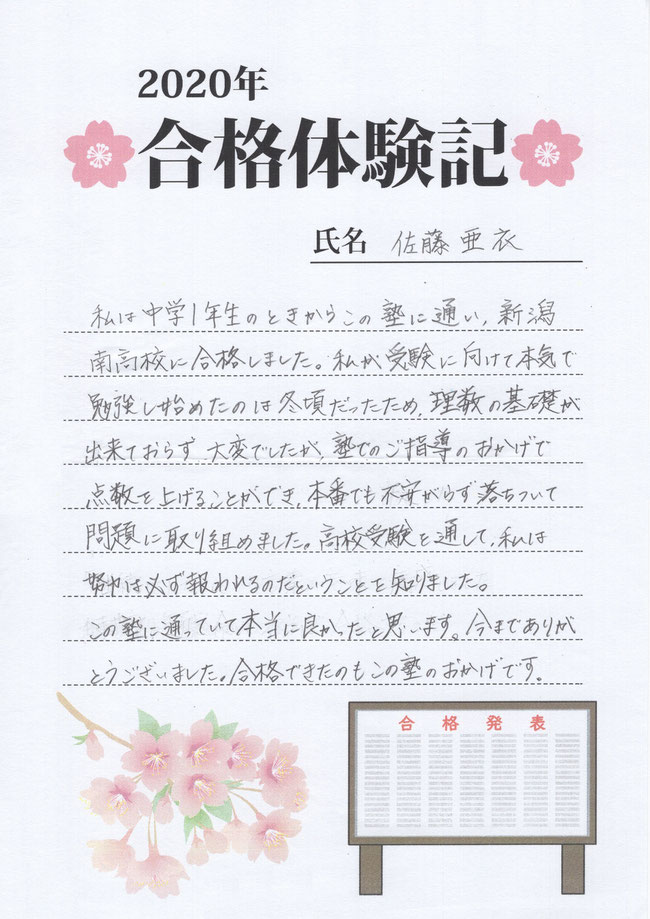 2020年
合格体験記
氏名 佐藤亜衣
私は中学1年生のときからこの塾に通い、新潟
南高校に合格しました。私が受験に向けて本気で
勉強し始めたのは冬頃だったため、理数の基礎が
出来ておらず大変でしたが、塾でのご指導のおかげで
点数を上げることができ、本番でも不安がらず落ちついて
問題に取り組めました。高校受験を通して、私は
努力は必ず報われるのだということを知りました。
この塾に通っていて本当に良かったと思います。今までありが
とうございました。合格できたのもこの塾のおかげです。
合格発表